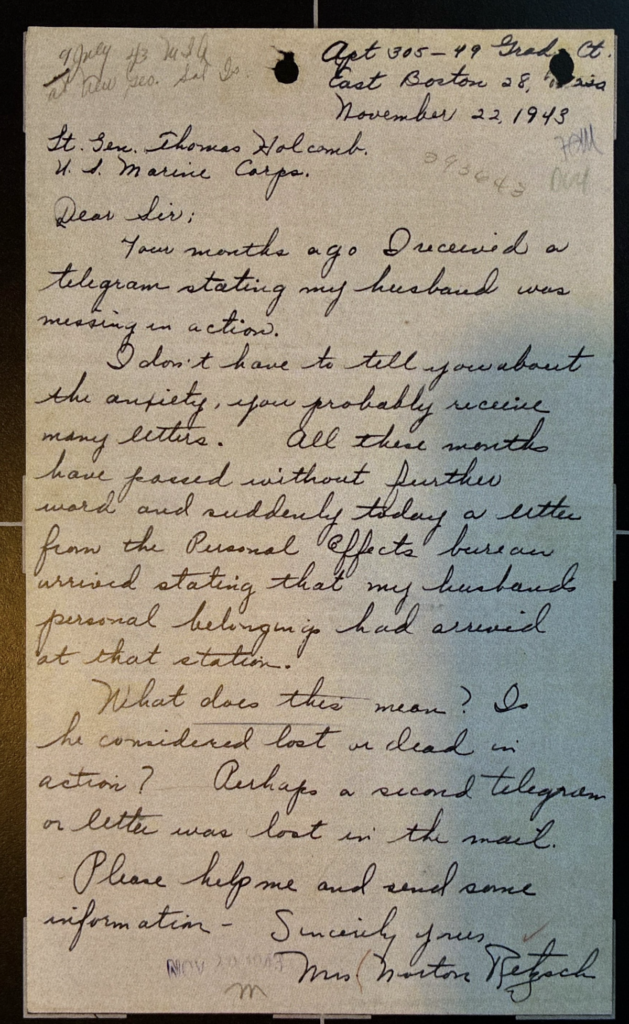 9 July 43 MIA
at New Geo. Sol Is.
Apt 305 – 49 Grady Ct.
East Boston 28,
November 22, 1943
Lt. Gen. Thomas Holcomb.
U. S. Marine Corps.
393643
Dear Sir;
Four months ago I received a
telegram stating my husband was
missing in action.
I don't have to tell you about
the anxiety, you probably receive
many letters. All these months
have passed without further
word and suddenly today a letter
from the Personal Effects bureau
arrived stating that my husbands
personal belongings had arrived
at that station.
What does this mean? Is
he considered lost or dead in
action? Perhaps a second telegram
or letter was lost in the mail.
Please help me and send some
information – Sincerely yours
Mrs Norton Retzsch